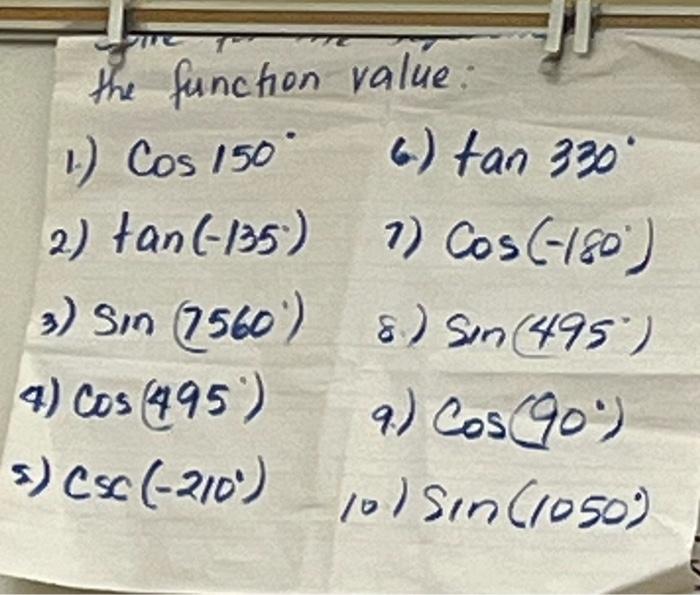 the function value:
1.) Cos 150°
2) tan(-135°)
3) Sin (7560°)
4) Cos (495°)
5) Csc (-210°)
6.) tan 330°
7) Cos (-180°)
8.) Sin (495°)
9.) Cos (90°)
10) Sin (1050°)